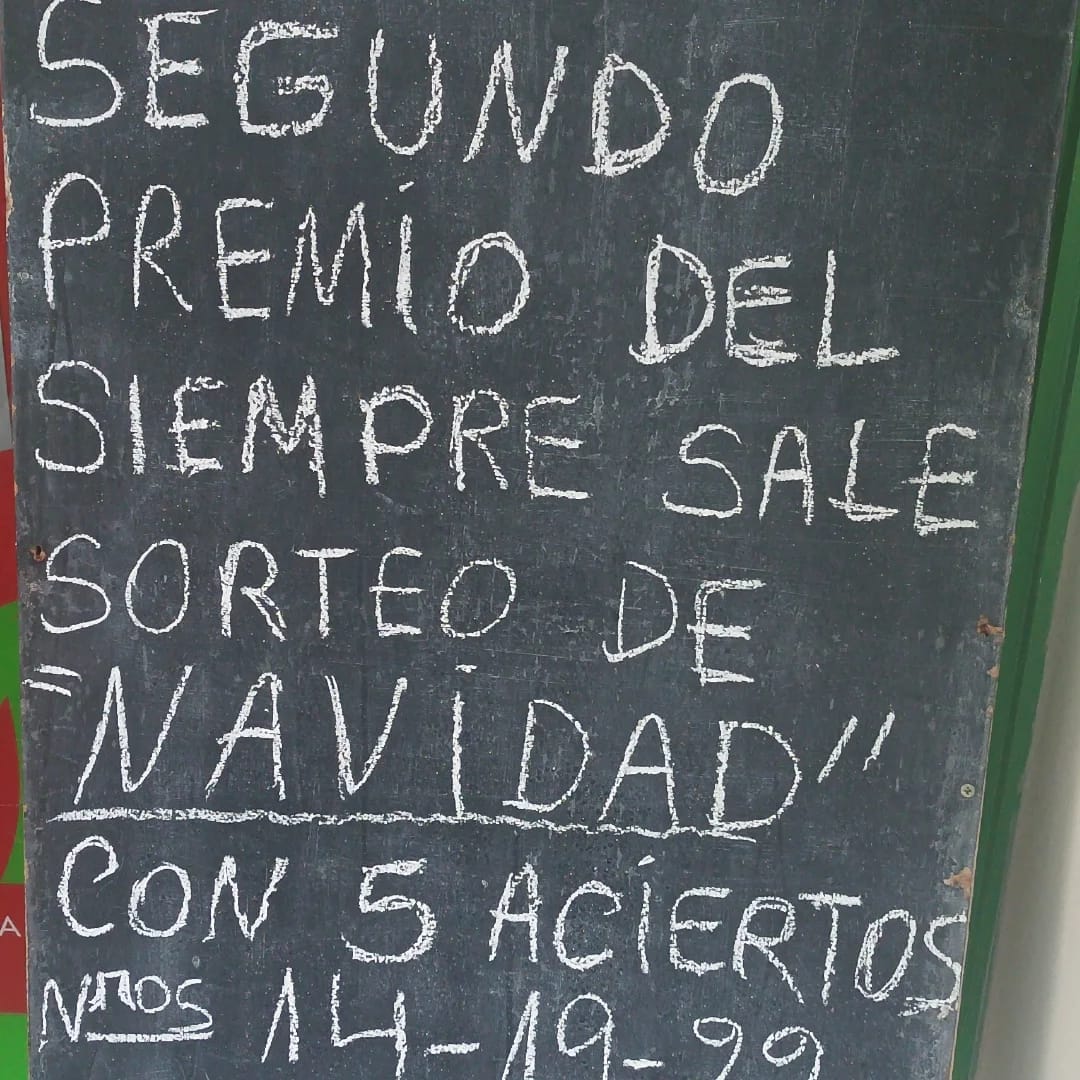 SEGUNDO
PREMIO DEL
SIEMPRE SALE
SORTEO DE
"NAVIDAD"
CON 5 ACIERTOS
Nros 14-19-99
A